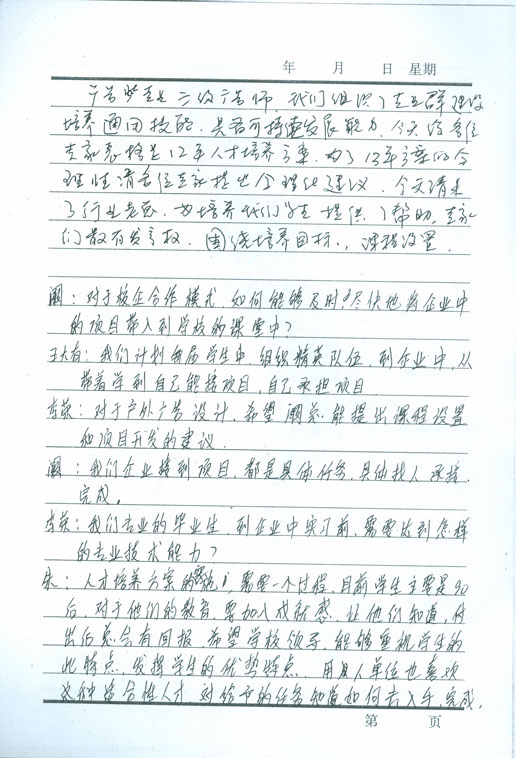 年 月 日 星期
广告学生是二级广告师,我们组织了专业群建设
培养通用技能,是否可持续发展能力,今天给各位
专家总结是12年人才培养方案,为了13年方案的合
理性,请各位专家提出合理化建议,今天请来
了行业老总,为培养我们学生提供了帮助,专家
们都有发言权,围绕培养目标,课程设置.
阚:对于校企合作模式,如何能够及时、尽快地将企业中
的项目带入到学校的课堂中?
王大有:我们计划每届学生中,组织精英队伍,到企业中,从
带着学到自己能接项目,自己承担项目
李荣:对于户外广告设计,希望阚总能提出课程设置
和项目开发的建议.
阚:我们企业接到项目,都是具体任务,具体找人承接,
完成。
李荣:我们专业的毕业生,到企业中实习前,需要达到怎样
的专业技术能力?
朱:人才培养方案的实施,需要一个过程,目前学生主要是90
后,对于他们的教育,要加入成就感,让他们知道,付
出后总会有回报,希望学校领导,能够重视学生的
此特点,发挥学生的优势特点,用人单位也喜欢
这种适合性人才,对给予的任务知道如何去入手,完成.
第 页